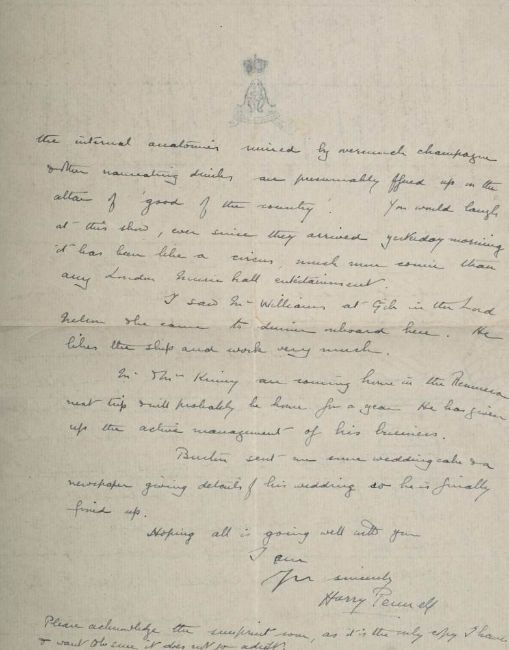 the internal anatomies ruined by overmuch champagne
& other nauseating drinks are presumably offered up on the
altar of 'good of the country'. You would laugh
at this show, ever since they arrived yesterday morning
it has been like a circus, much more comic than
any London Music hall entertainment.
I saw Mr Williams at Gib in the Lord
Nelson & he came to dinner onboard here. He
likes the ship and work very much.
Mr & Mrs Kinsey are coming home in the
next trip & will probably be home for a year. He has given
up the active management of his business.
Burton sent me some wedding cake & a
newspaper giving details of his wedding so he is finally
fixed up.
Hoping all is going well with you
I am
Yrs sincerely
Harry Pennell
Please acknowledge the soon, as it is the only copy I have
& want to be sure it does not go adrift.